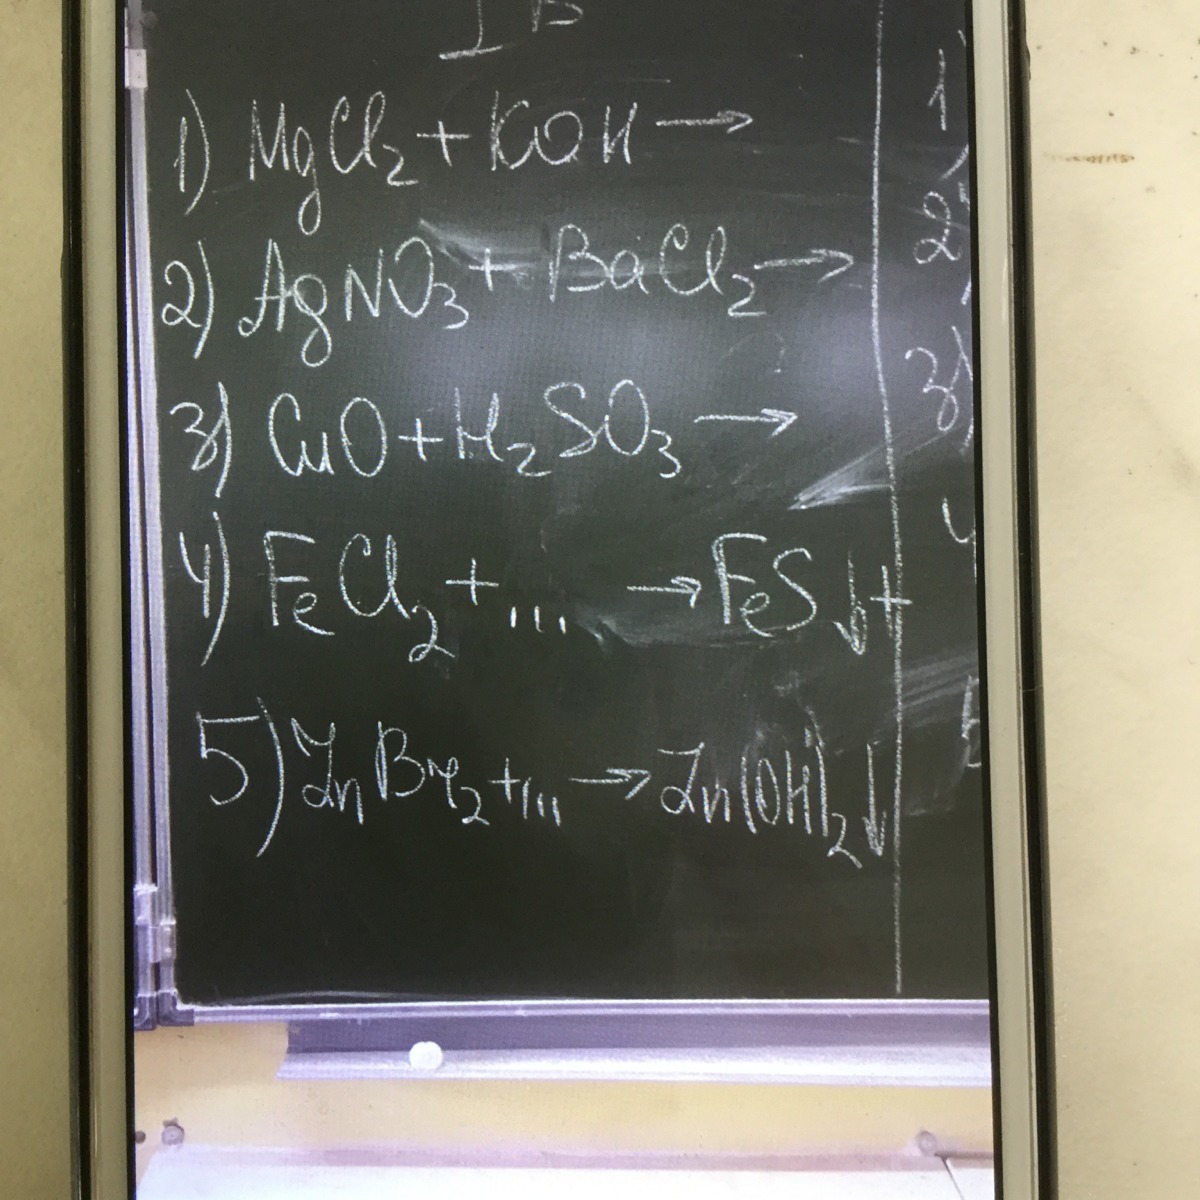 I В
1) MgCl₂ + KOH →
2) AgNO₃ + BaCl₂ →
3) CuO + H₂SO₃ →
4) FeCl₂ + ... → FeS↓ +
5) ZnBr₂ + ... → Zn(OH)₂↓
1)
2)
3)
4
5